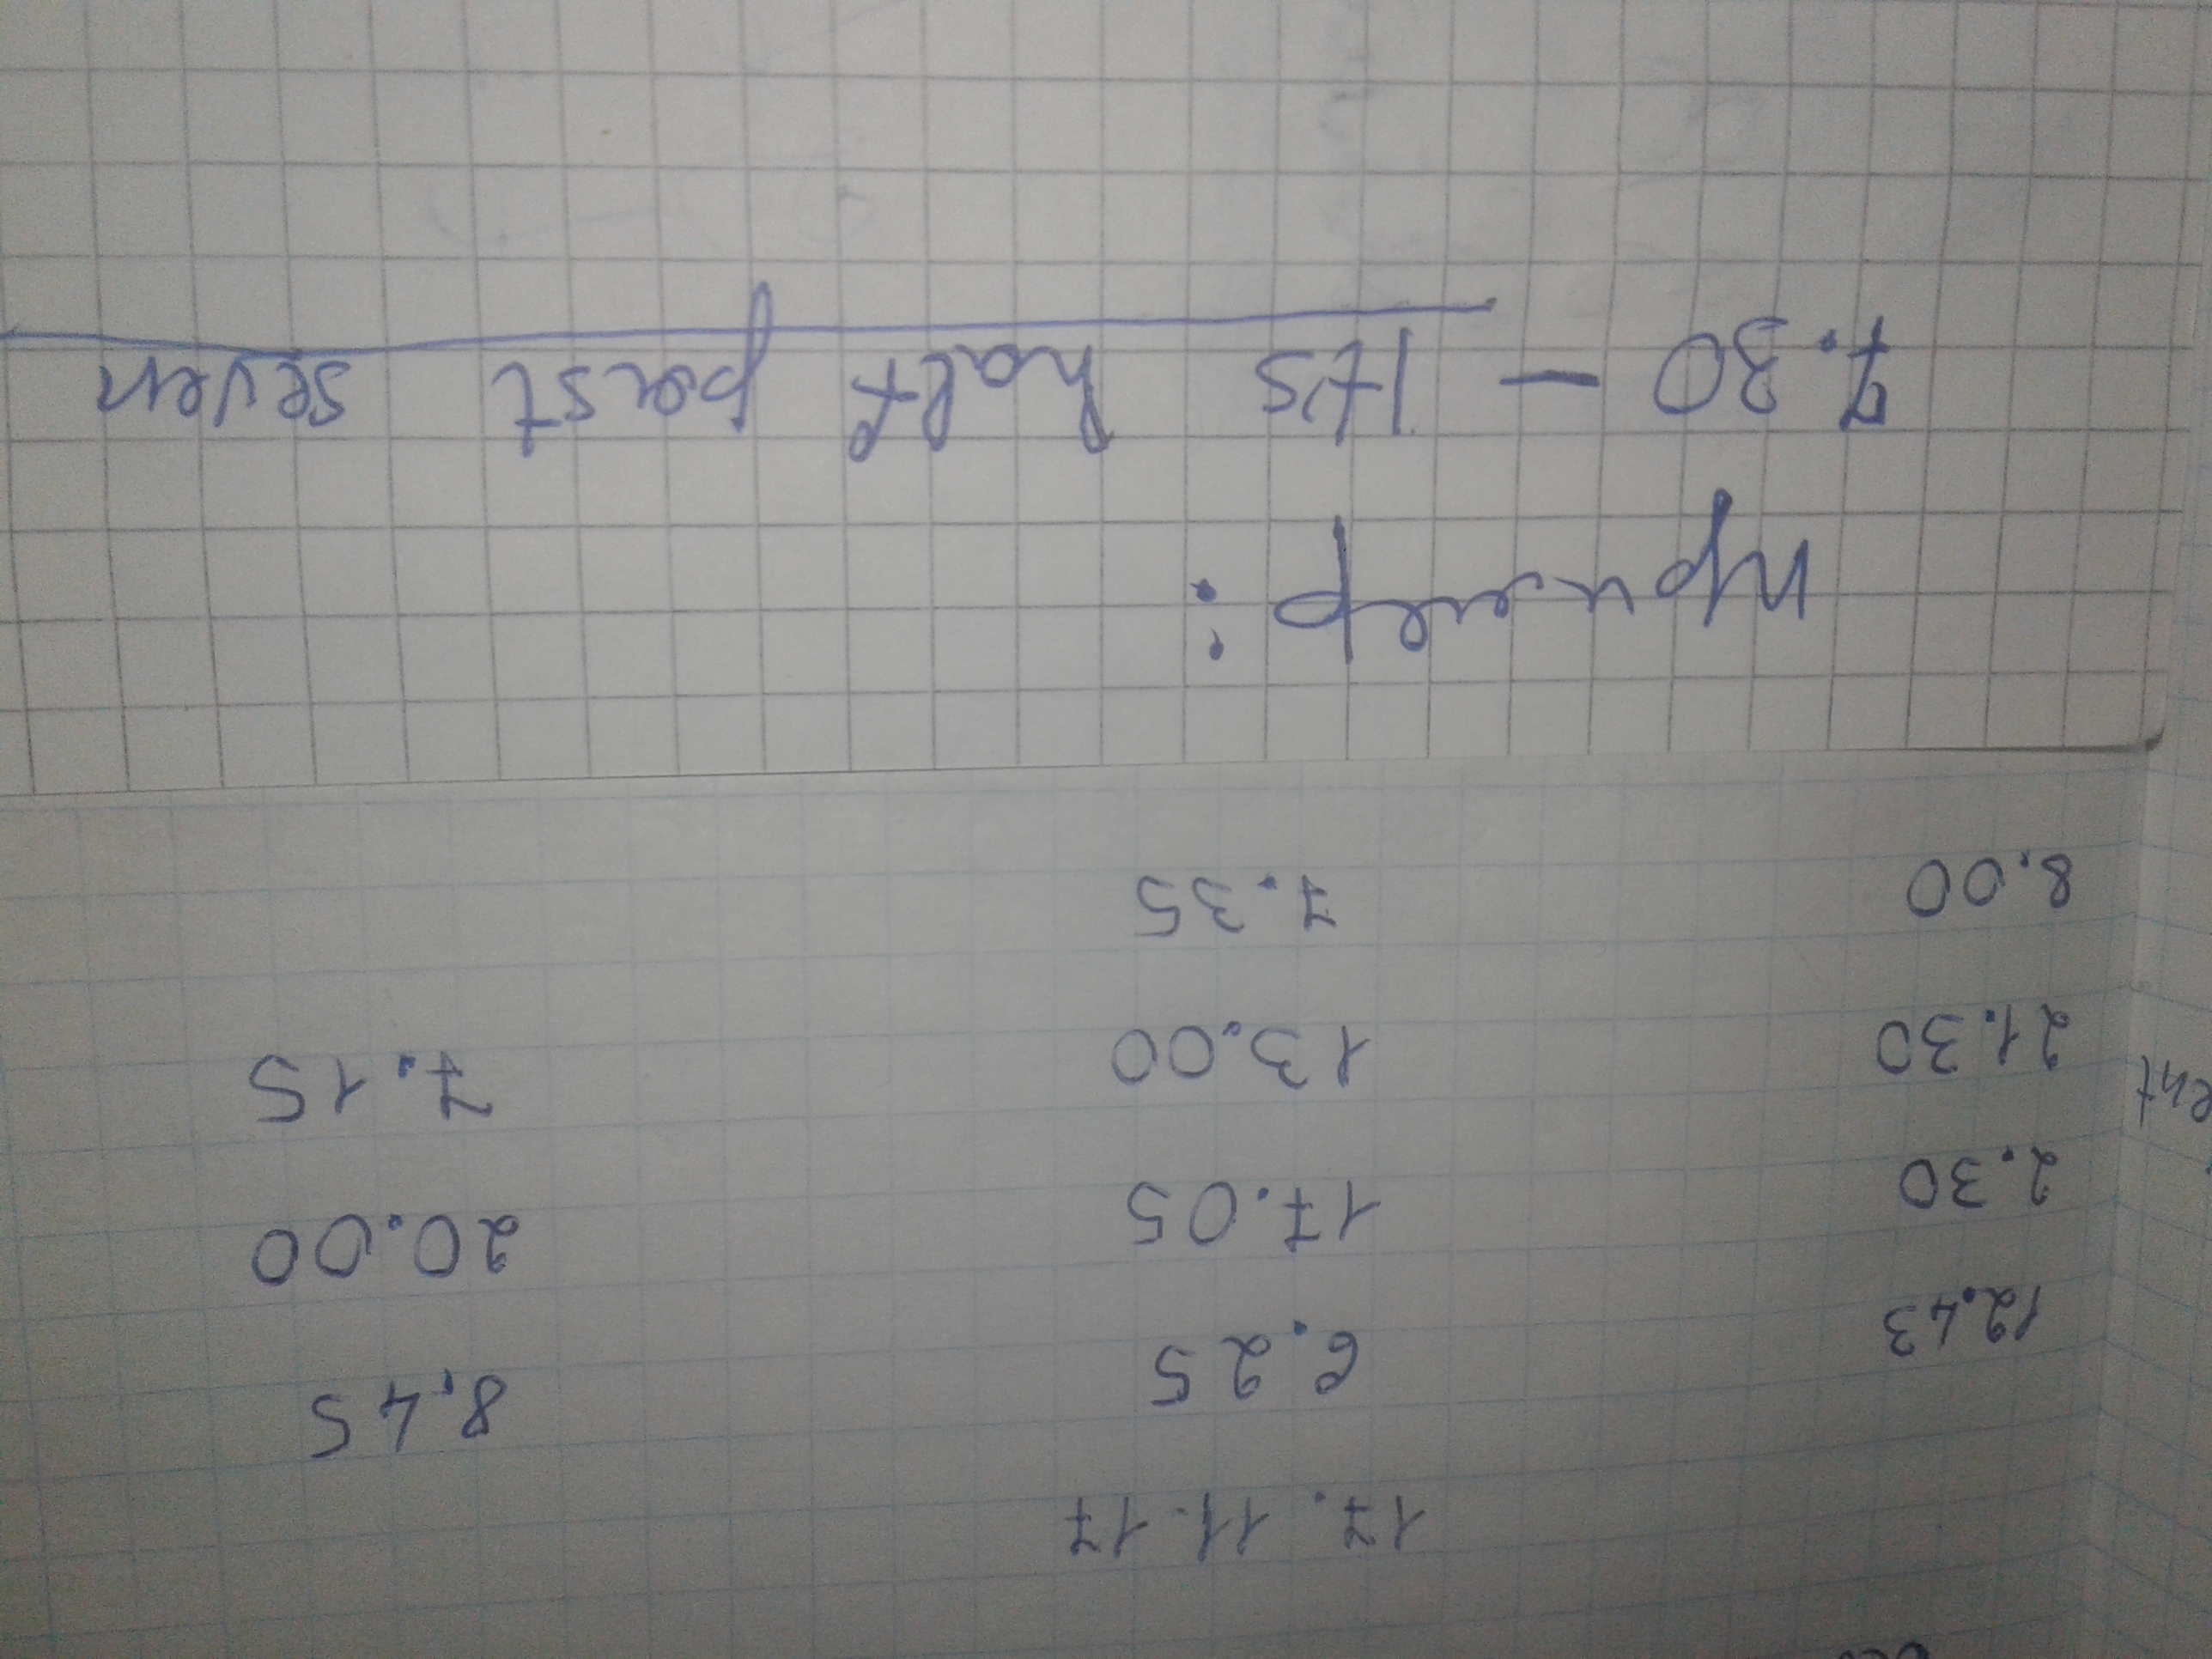 17.11.17
12.43 6.25 8.45
2.30 17.05 20.00
21.30 13.00 7.15
8.00 7.35
пример:
7.30 – Its half past seven
ent